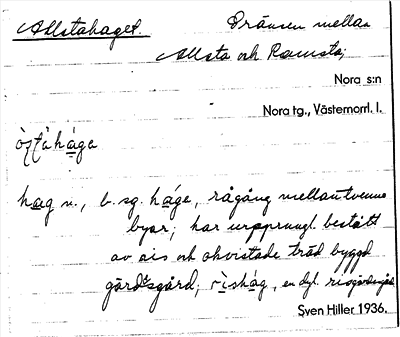 Allstahaget. Gränsen mellan
Allsta och Ramsta;
Nora s:n
Nora tg., Västernorrl. l.
hag n., b. sg. háge, rågång mellan tvenne
byar; har ursprungl. bestått
av ris och okvistade träd byggd
gärdsgård; rìshág, en dyl. risgärdsgård
Sven Hiller 1936.